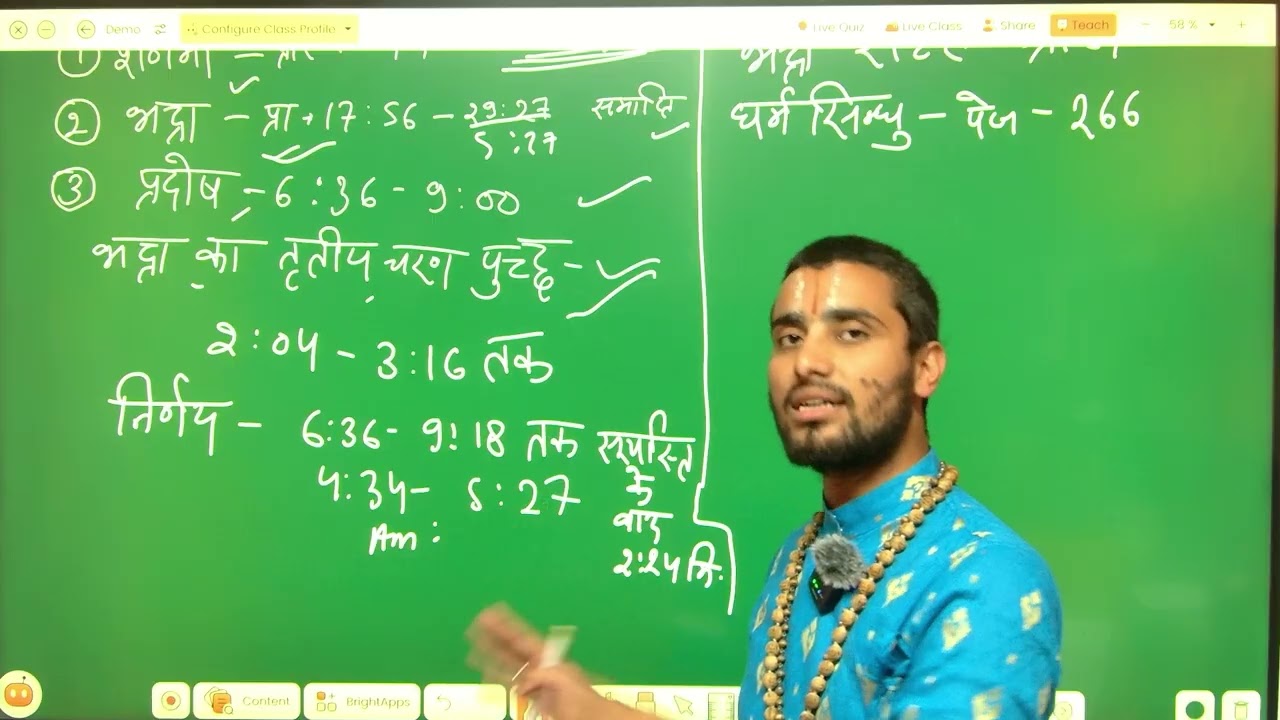 Demo
Configure Class Profile
Live Quiz
Live Class
Share
Teach
58 %
② भद्रा – प्रा + 17:56 – 29:27 समाप्ति
5:27
③ प्रदोष – 6:36 - 9:00
भद्रा का तृतीय चरण पुच्छ –
2:04 – 3:16 तक
निर्णय – 6:36 - 9:18 तक सूर्यास्त
4:34 – 5:27 के
Am: बाद
2:24 मि.
धर्म सिन्धु – पेज – 266
Content
BrightApps